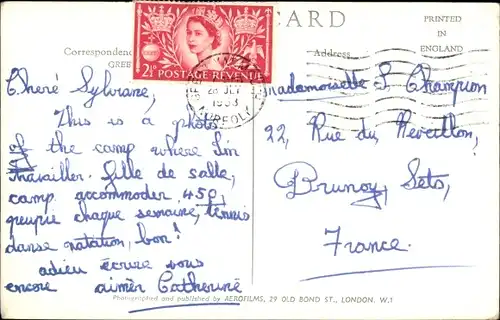 CARD
PRINTED
IN
ENGLAND
Correspondence
GREE
Address
2½ POSTAGE REVENUE
1953
NORFOLK
Cheré Sylviane,
This is a photo
of the camp where I'm
travailler. fille de salle,
camp accommoder 450,
peuple chaque semaine, tennis
danse natation, bon!
adieu écrire vous
encore aimér Catheriné
Mademoiselle S. Champion
22, Rue du Reveillon,
Brunoy, Seto,
France.
Photographed and published by AEROFILMS, 29 OLD BOND ST., LONDON. W.1